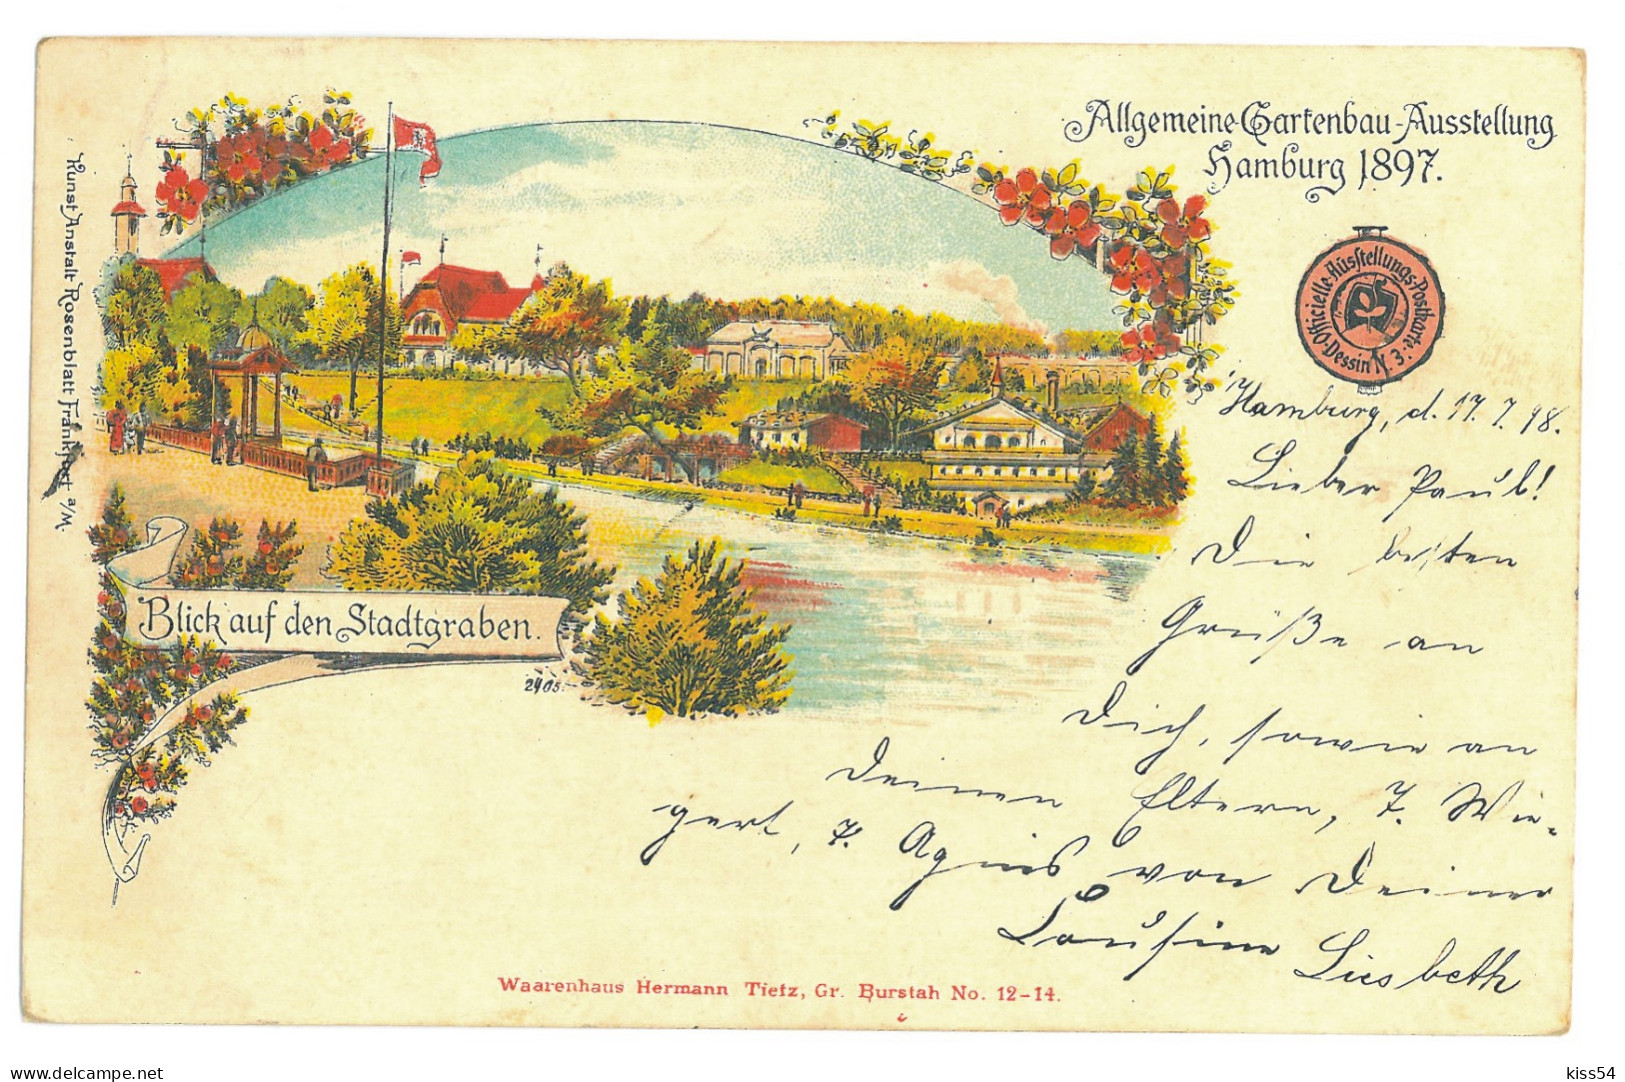 Allgemeine Gartenbau-Ausstellung
Hamburg 1897.
Officielle-Ausstellungs-Postkarte:
Dessin N. 3.
Kunst Anstalt Rosenblatt Frankfurt a/M.
Hamburg, d. 17.7.98.
Lieber Paul!
Die besten
Grüße an
Dich, sowie an
Deinen Eltern, F. Wie-
gert, F. Agnes von Deiner
Cousine Liesbeth
Blick auf den Stadtgraben.
2405.
Waarenhaus Hermann Tietz, Gr. Burstah No. 12-14.
delcampe.net
kiss54